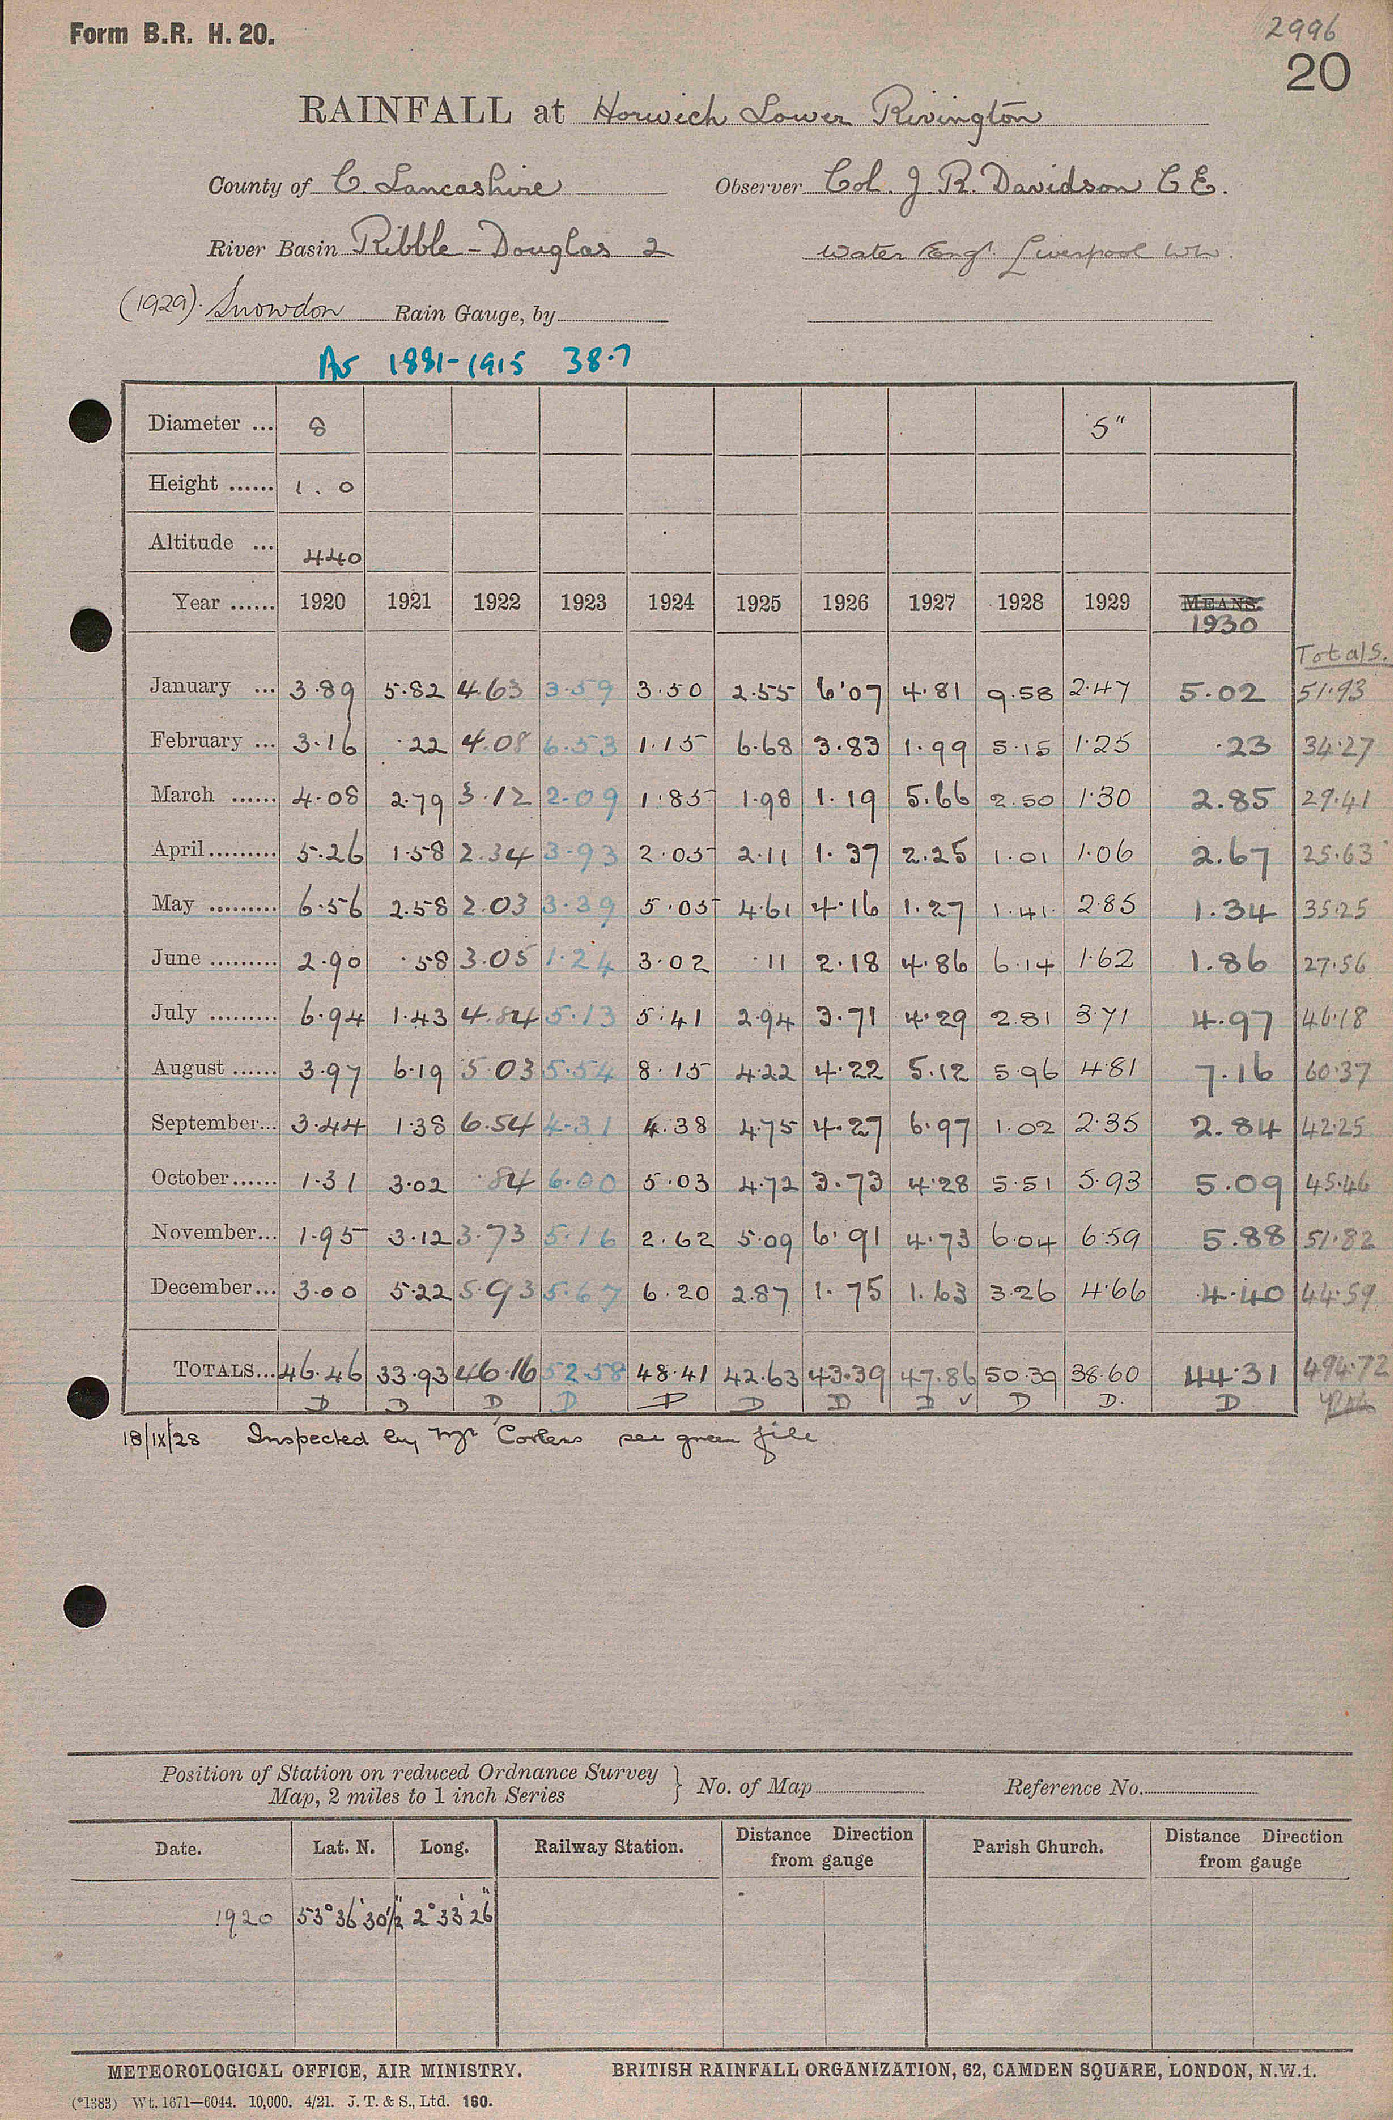 Form B.R. H. 20.
2996
20
RAINFALL at Horwich Lower Rivington
County of C. Lancashire Observer Col. J. R. Davidson C E.
River Basin Ribble - Douglas 2 Water Engr. Liverpool WW.
(1929). Snowdon Rain Gauge, by
Av 1881-1915 38.7
Diameter ... 8 5"
Height ...... 1.0
Altitude ... 440
Year ...... 1920 1921 1922 1923 1924 1925 1926 1927 1928 1929 MEANS. 1930
Totals.
January ... 3.89 5.82 4.63 3.59 3.50 2.55 6.07 4.81 9.58 2.47 5.02 51.93
February ... 3.16 .22 4.08 6.53 1.15 6.68 3.83 1.99 5.15 1.25 .23 34.27
March ...... 4.08 2.79 3.12 2.09 1.85 1.98 1.19 5.66 2.50 1.30 2.85 29.41
April ......... 5.26 1.58 2.34 3.93 2.05 2.11 1.37 2.25 1.01 1.06 2.67 25.63
May ......... 6.56 2.58 2.03 3.39 5.05 4.61 4.16 1.27 1.41 2.85 1.34 35.25
June ......... 2.90 .58 3.05 1.24 3.02 .11 2.18 4.86 6.14 1.62 1.86 27.56
July ......... 6.94 1.43 4.84 5.13 5.41 2.94 3.71 4.29 2.81 3.71 4.97 46.18
August ...... 3.97 6.19 5.03 5.54 8.15 4.22 4.22 5.12 5.96 4.81 7.16 60.37
September... 3.44 1.38 6.54 4.31 4.38 4.75 4.27 6.97 1.02 2.35 2.84 42.25
October...... 1.31 3.02 .84 6.00 5.03 4.72 3.73 4.28 5.51 5.93 5.09 45.46
November... 1.95 3.12 3.73 5.16 2.62 5.09 6.91 4.73 6.04 6.59 5.88 51.82
December... 3.00 5.22 5.93 5.67 6.20 2.87 1.75 1.63 3.26 4.66 4.40 44.59
TOTALS... 46.46 33.93 46.16 52.58 48.41 42.63 43.39 47.86 50.39 38.60 44.31 494.72
D D D D D D D D ✓ D D. D
18/IX/28 Inspected by Mr Corless see green file
Position of Station on reduced Ordnance Survey
Map, 2 miles to 1 inch Series } No. of Map Reference No.
Date. Lat. N. Long. Railway Station. Distance Direction from gauge Parish Church. Distance Direction from gauge
1920 53° 36' 30½" 2° 33' 26"
METEOROLOGICAL OFFICE, AIR MINISTRY. BRITISH RAINFALL ORGANIZATION, 62, CAMDEN SQUARE, LONDON, N.W.1.
(*1383) Wt. 1671—6044. 10,000. 4/21. J. T. & S., Ltd. 160.